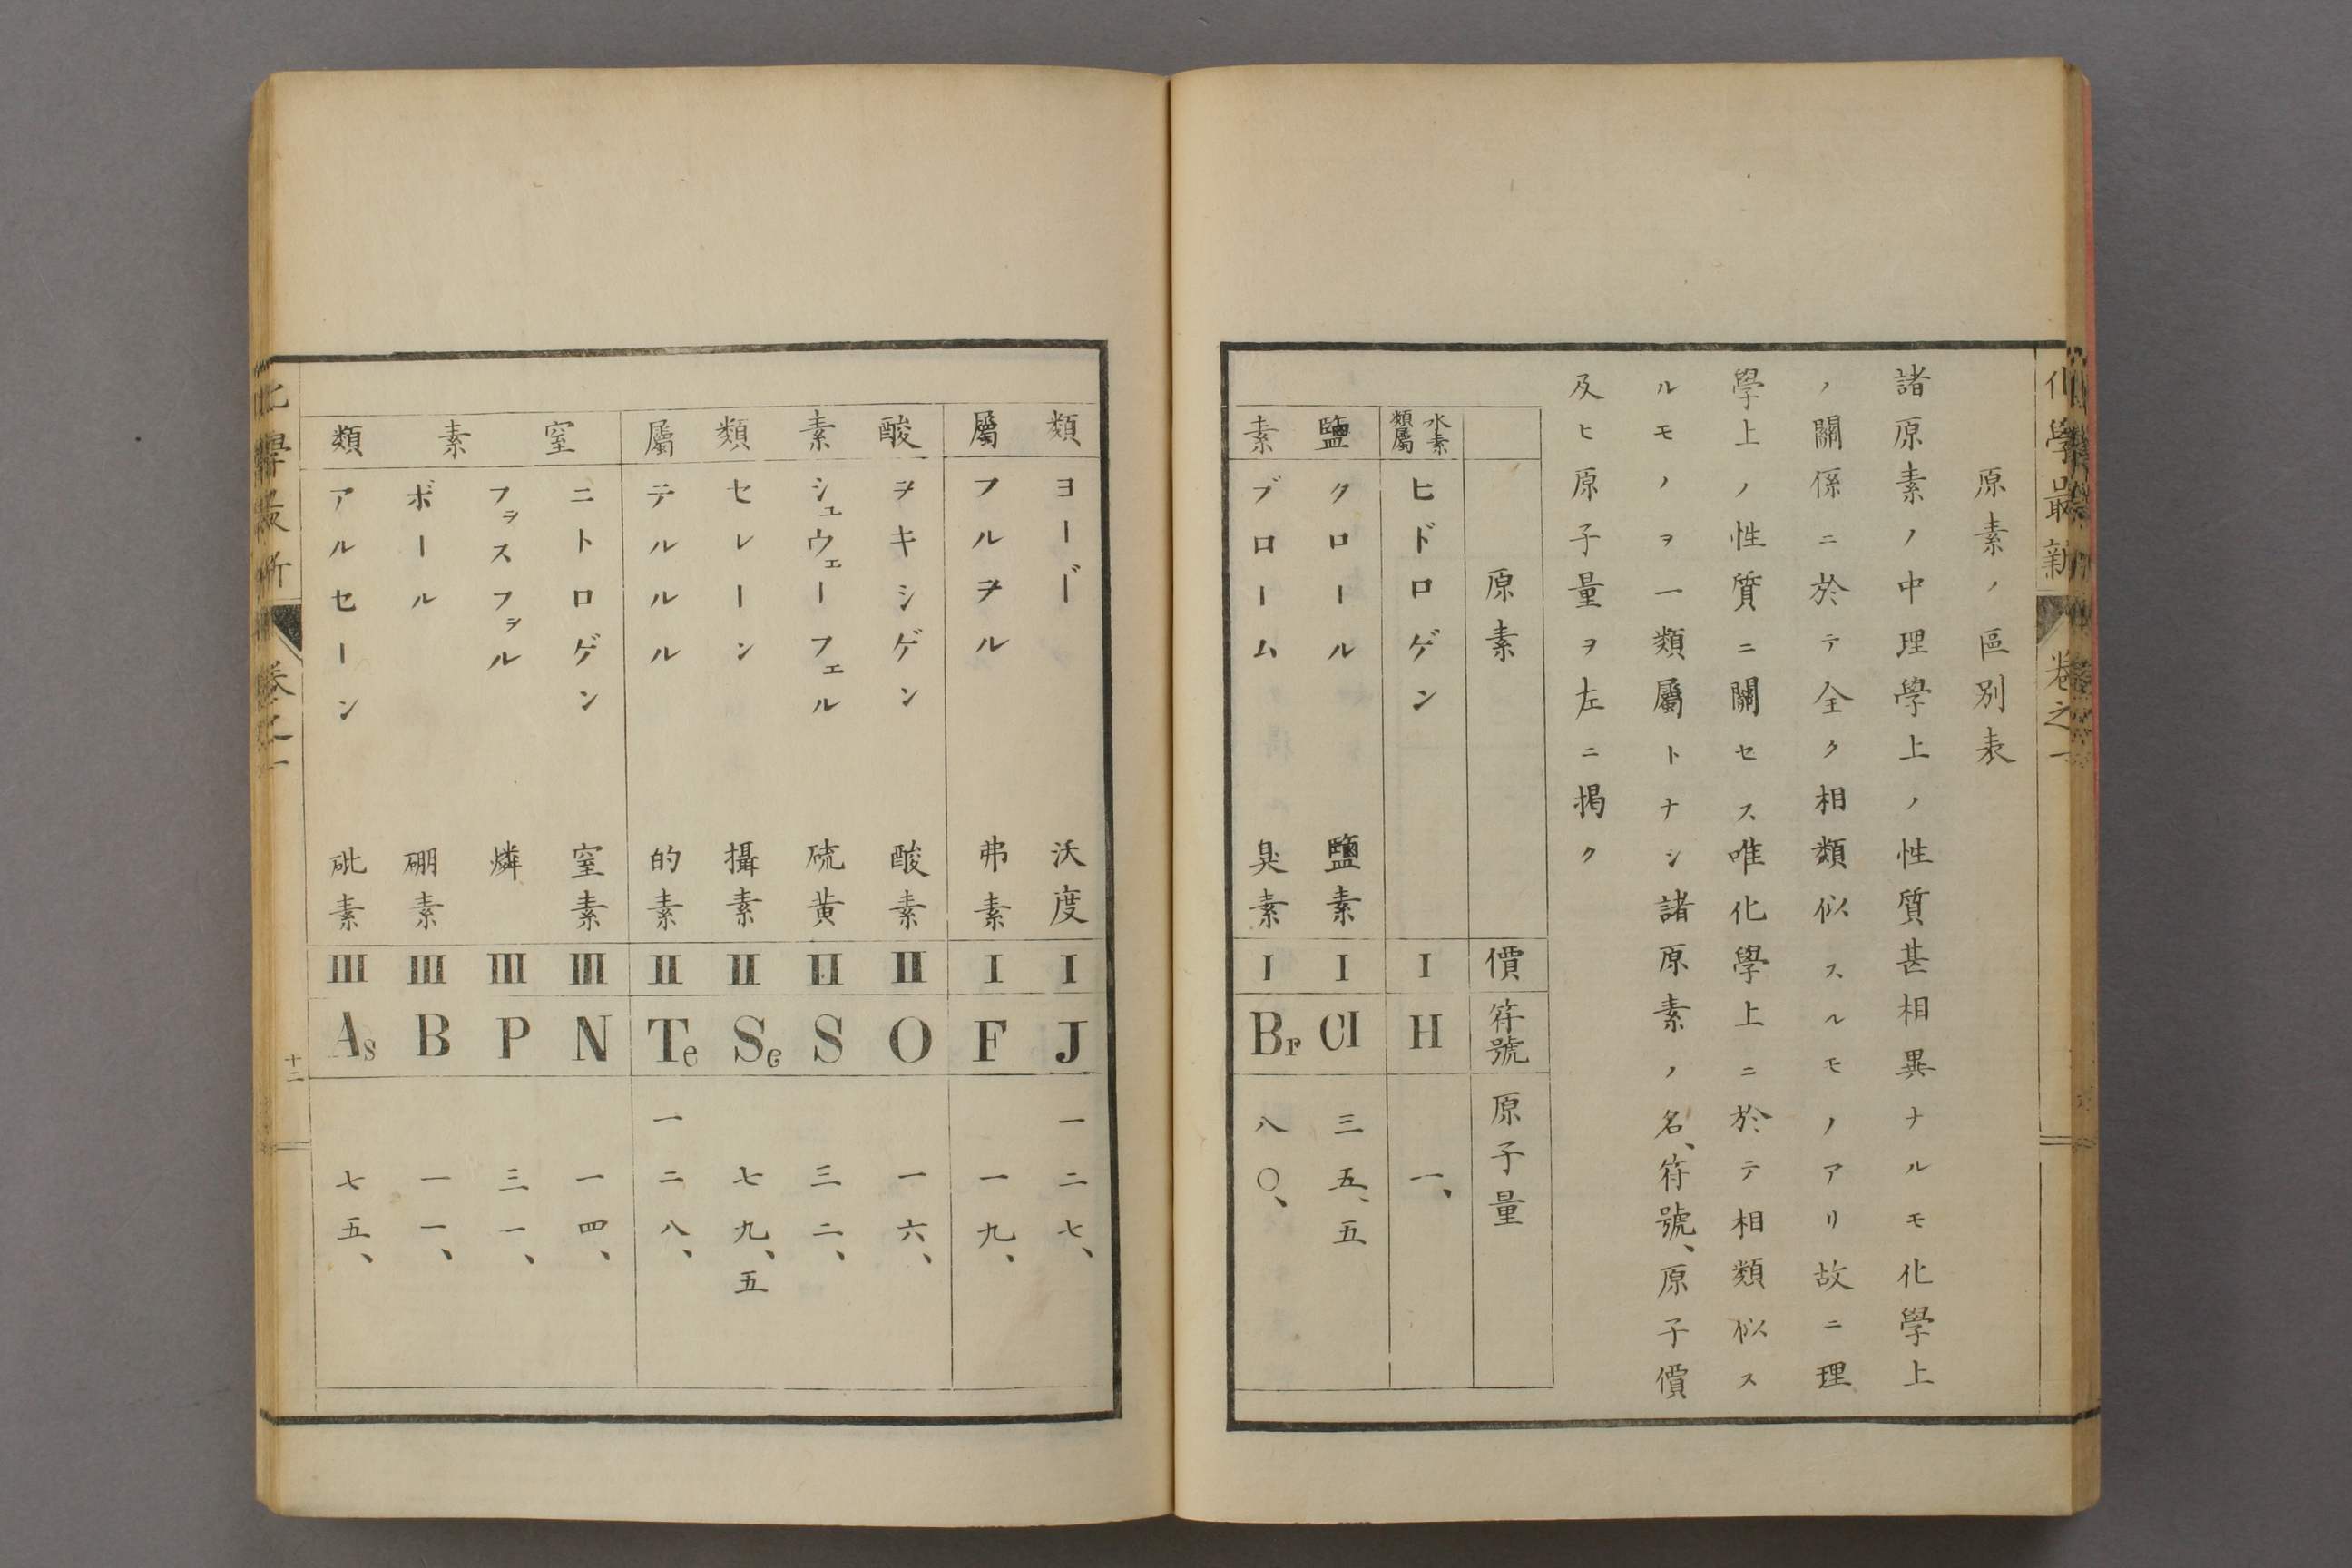 化學最新 卷之一
原素ノ區別表
諸原素ノ中理學上ノ性質甚相異ナルモ化學上
ノ關係ニ於テ全ク相類似スルモノアリ故ニ理
學上ノ性質ニ關セス唯化學上ニ於テ相類似ス
ルモノヲ一類屬トナシ諸原素ノ名、符號、原子價
及ヒ原子量ヲ左ニ掲ク
原素 價 符號 原子量
水素類屬 ヒドロゲン I H 一、
鹽 クロール 鹽素 I Cl 三五、五
素 ブローム 臭素 I Br 八〇、
類 ヨード 沃度 I J 一二七、
屬 フルヲル 弗素 I F 一九、
酸 ヲキシゲン 酸素 II O 一六、
素 シュウェーフェル 硫黄 II S 三二、
類 セレーン 攝素 II Se 七九、五
屬 テルルル 的素 II Te 一二八、
窒 ニトロゲン 窒素 III N 一四、
フヲスフヲル 燐 III P 三一、
素 ボール 硼素 III B 一一、
類 アルセーン 砒素 III As 七五、
化學最新 卷之一 十二